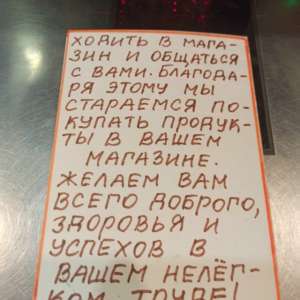 ХОДИТЬ В МАГА-
ЗИН И ОБЩАТЬСЯ
С ВАМИ. БЛАГОДА-
РЯ ЭТОМУ МЫ
СТАРАЕМСЯ ПО-
КУПАТЬ ПРОДУК-
ТЫ В ВАШЕМ
МАГАЗИНЕ.
ЖЕЛАЕМ ВАМ
ВСЕГО ДОБРОГО,
ЗДОРОВЬЯ И
УСПЕХОВ В
ВАШЕМ НЕЛЁГ-
КОМ ТРУДЕ!